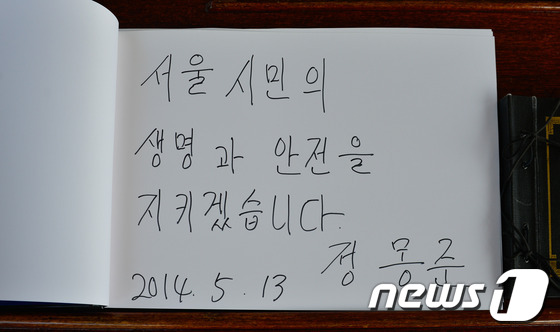 서울 시민의
생명과 안전을
지키겠습니다.
2014. 5. 13 정몽준
news1